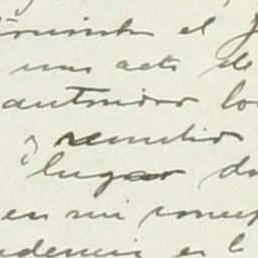 el
un acto de
autorizar lo
y remitir
lugar do
en mi concep
dencia es l